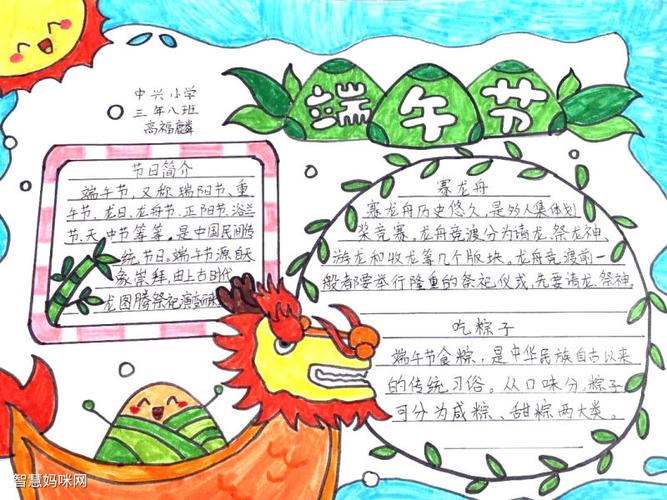 端午节
中兴小学
三年八班
高福麟
节日简介
端午节，又称端阳节、重
午节、龙日、龙舟节、正阳节、浴兰
节、天中节等等。是中国民间传
统节日，端午节源自天
象崇拜，由上古时代
龙图腾祭祀演变而来
赛龙舟
赛龙舟历史悠久，是多人集体划
桨竞赛。龙舟竞渡分为请龙、祭龙神、
游龙和收龙等几个版块。龙舟竞渡前一
般都要举行隆重的祭祀仪式，先要请龙、祭神
吃粽子
端午节食粽，是中华民族自古以来
的传统习俗。从口味分，粽子
可分为咸粽、甜粽两大类。
智慧妈咪网